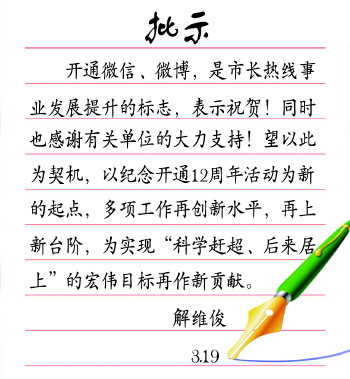 批示
开通微信、微博，是市长热线事
业发展提升的标志，表示祝贺！同时
也感谢有关单位的大力支持！望以此
为契机，以纪念开通12周年活动为新
的起点，多项工作再创新水平，再上
新台阶，为实现“科学赶超、后来居
上”的宏伟目标再作新贡献。
解维俊
3.19